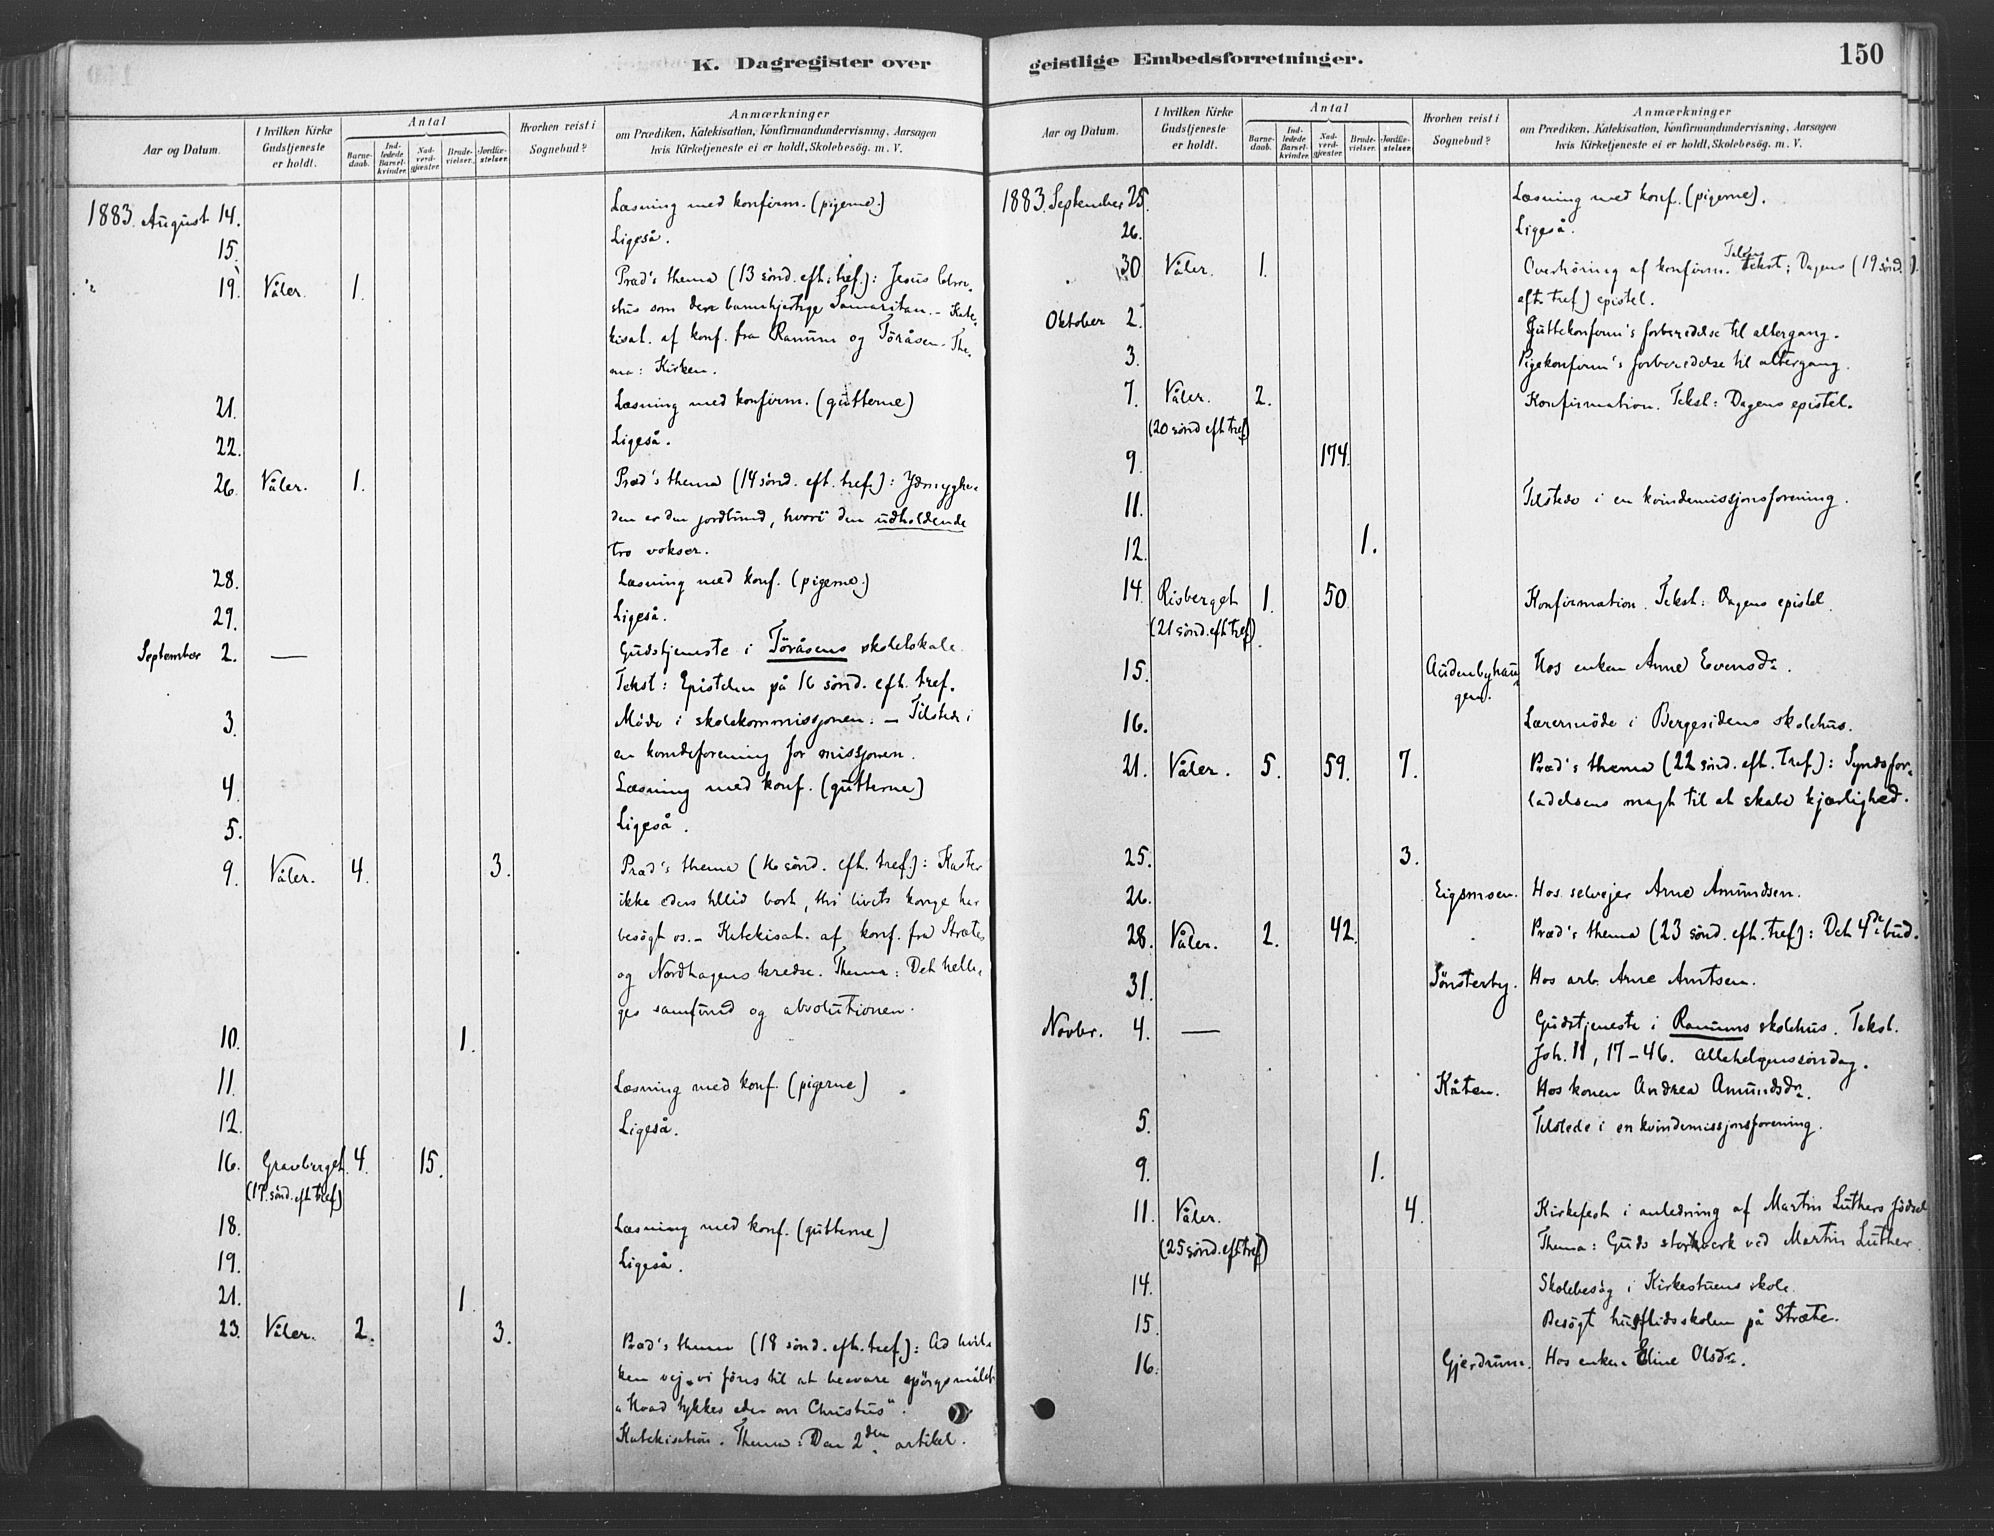 K. Dagregister over
Aar og Datum.
I hvilken Kirke Gudstjeneste er holdt.
Antal
Barnedaab.
Indledede Barselkvinder.
Nadverdgjæster.
Brudevielser.
Jordfæstelser.
Hvorhen reist i Sognebud?
Anmærkninger
om Prædiken, Katekisation, Konfirmandundervisning, Aarsagen
hvis Kirketjeneste ei er holdt, Skolebesøg. m. V.
1883 August 14. Læsning med konfirm. (pigerne.)
15. Ligeså.
19. Våler. 1. Præd's thema (13 sönd. eft. tref.): Jesus Chri-
stus som den barmhjertige Samaritan. – Kate-
kisat. af konf. fra Ranum og Töråsen. The-
ma: Kirken.
21. Læsning med konfirm. (gutterne)
22. Ligeså.
26. Våler. 1. Præd's thema (14 sönd. eft. tref.): Ydmyghe-
den er den jordbund, hvori den udholdende
tro vokser.
28. Læsning med konf. (pigerne.)
29. Ligeså.
September 2. — Gudstjeneste i Töråsens skolelokale.
Tekst: Epistelen på 16 sönd. eft. tref.
3. Möde i skolekommissjonen. – Tilstede i
en kvindeforening for missjonen.
4. Læsning med konf. (gutterne)
5. Ligeså.
9. Våler. 4. 3. Præd's thema (16 sönd. eft. tref.): Kaster
ikke eders tillid bort, thi livets konge har
besögt os. – Katekisat. af konf. fra Stræte
og Nordhagens kredse. Thema: Det helli-
ges samfund og absolutionen.
10. 1.
11. Læsning med konf. (pigerne)
12. Ligeså.
16. Gravberget. 4. 15.
(17. sönd. eft tref)
18. Læsning med konf. (gutterne)
19. Ligeså.
21. 1.
23. Våler. 2. 3. Præd's thema (18 sönd. eft. tref.): Ad hvil-
ken vej vi föres til at besvare spörgsmålet
"Hvad tykkes eder om Christus".
Katekisation. Thema: Den 2den artikel.
geistlige Embedsforretninger.
150
Aar og Datum.
I hvilken Kirke Gudstjeneste er holdt.
Antal
Barnedaab.
Indledede Barselkvinder.
Nadverdgjæster.
Brudevielser.
Jordfæstelser.
Hvorhen reist i Sognebud?
Anmærkninger
om Prædiken, Katekisation, Konfirmandundervisning, Aarsagen
hvis Kirketjeneste ei er holdt, Skolebesøg. m. V.
1883. September 25. Læsning med konf. (pigerne).
26. Ligeså.
30 Våler. 1. Overhöring af konfirm. Tekst: Dagens (19 sönd.
eft. tref) epistel.
Oktober 2. Guttekonfirm's forberedelse til altergang.
3. Pigekonfirm's forberedelse til altergang.
7. Våler. 2. Konfirmation. Tekst: Dagens epistel.
(20 sönd eft tref)
9. 174.
11. Tilstede i en kvindemissjonsforening.
12. 1.
14. Risberget 1. 50. Konfirmation. Tekst: Dagens epistel.
(21 sönd. eft tref)
15. Audenbyhaugen. Hos enken Anne Evensdr.
16. Lærermöde i Bergesidens skolehus.
21. Våler. 5. 59. 7. Præd's thema (22 sönd. eft. tref.): Syndsfor-
ladelsens magt til at skabe kjærlighed.
25. 3.
26. Eigsmoen. Hos selvejer Arne Amundsen.
28. Våler. 2. 42. Præd's thema (23 sönd. eft. tref): Det 4de bud.
31. Sönsterby. Hos arb. Arne Arntsen.
Novbr. 4. — Gudstjeneste i Ranums skolehus. Tekst.
Joh. 11, 17–46. Allehelgenssöndag.
Kåten. Hos konen Andrea Amundsdr.
5. Tilstede i en kvindemissjonsforening.
9. 1.
11. Våler. 4. Kirkefest i anledning af Martin Luthers födsel
(25 sönd. eft tref) Thema: Guds storverk ved Martin Luther.
14. Skolebesög i Kirkestuens skole.
15. Besögt husflidsskolen på Stræte.
16. Gjerdrum. Hos enken Eline Olsdr.